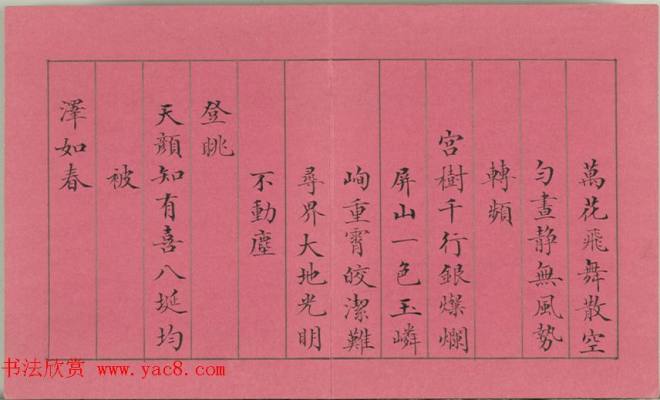 萬花飛舞散空
勻晝静無風勢
轉頻
宮樹千行銀燦爛
屏山一色玉嶙
峋重霄皎潔難
尋界大地光明
不動塵
登眺
天顏知有喜八埏均
被
澤如春
书法欣赏 www.yac8.com